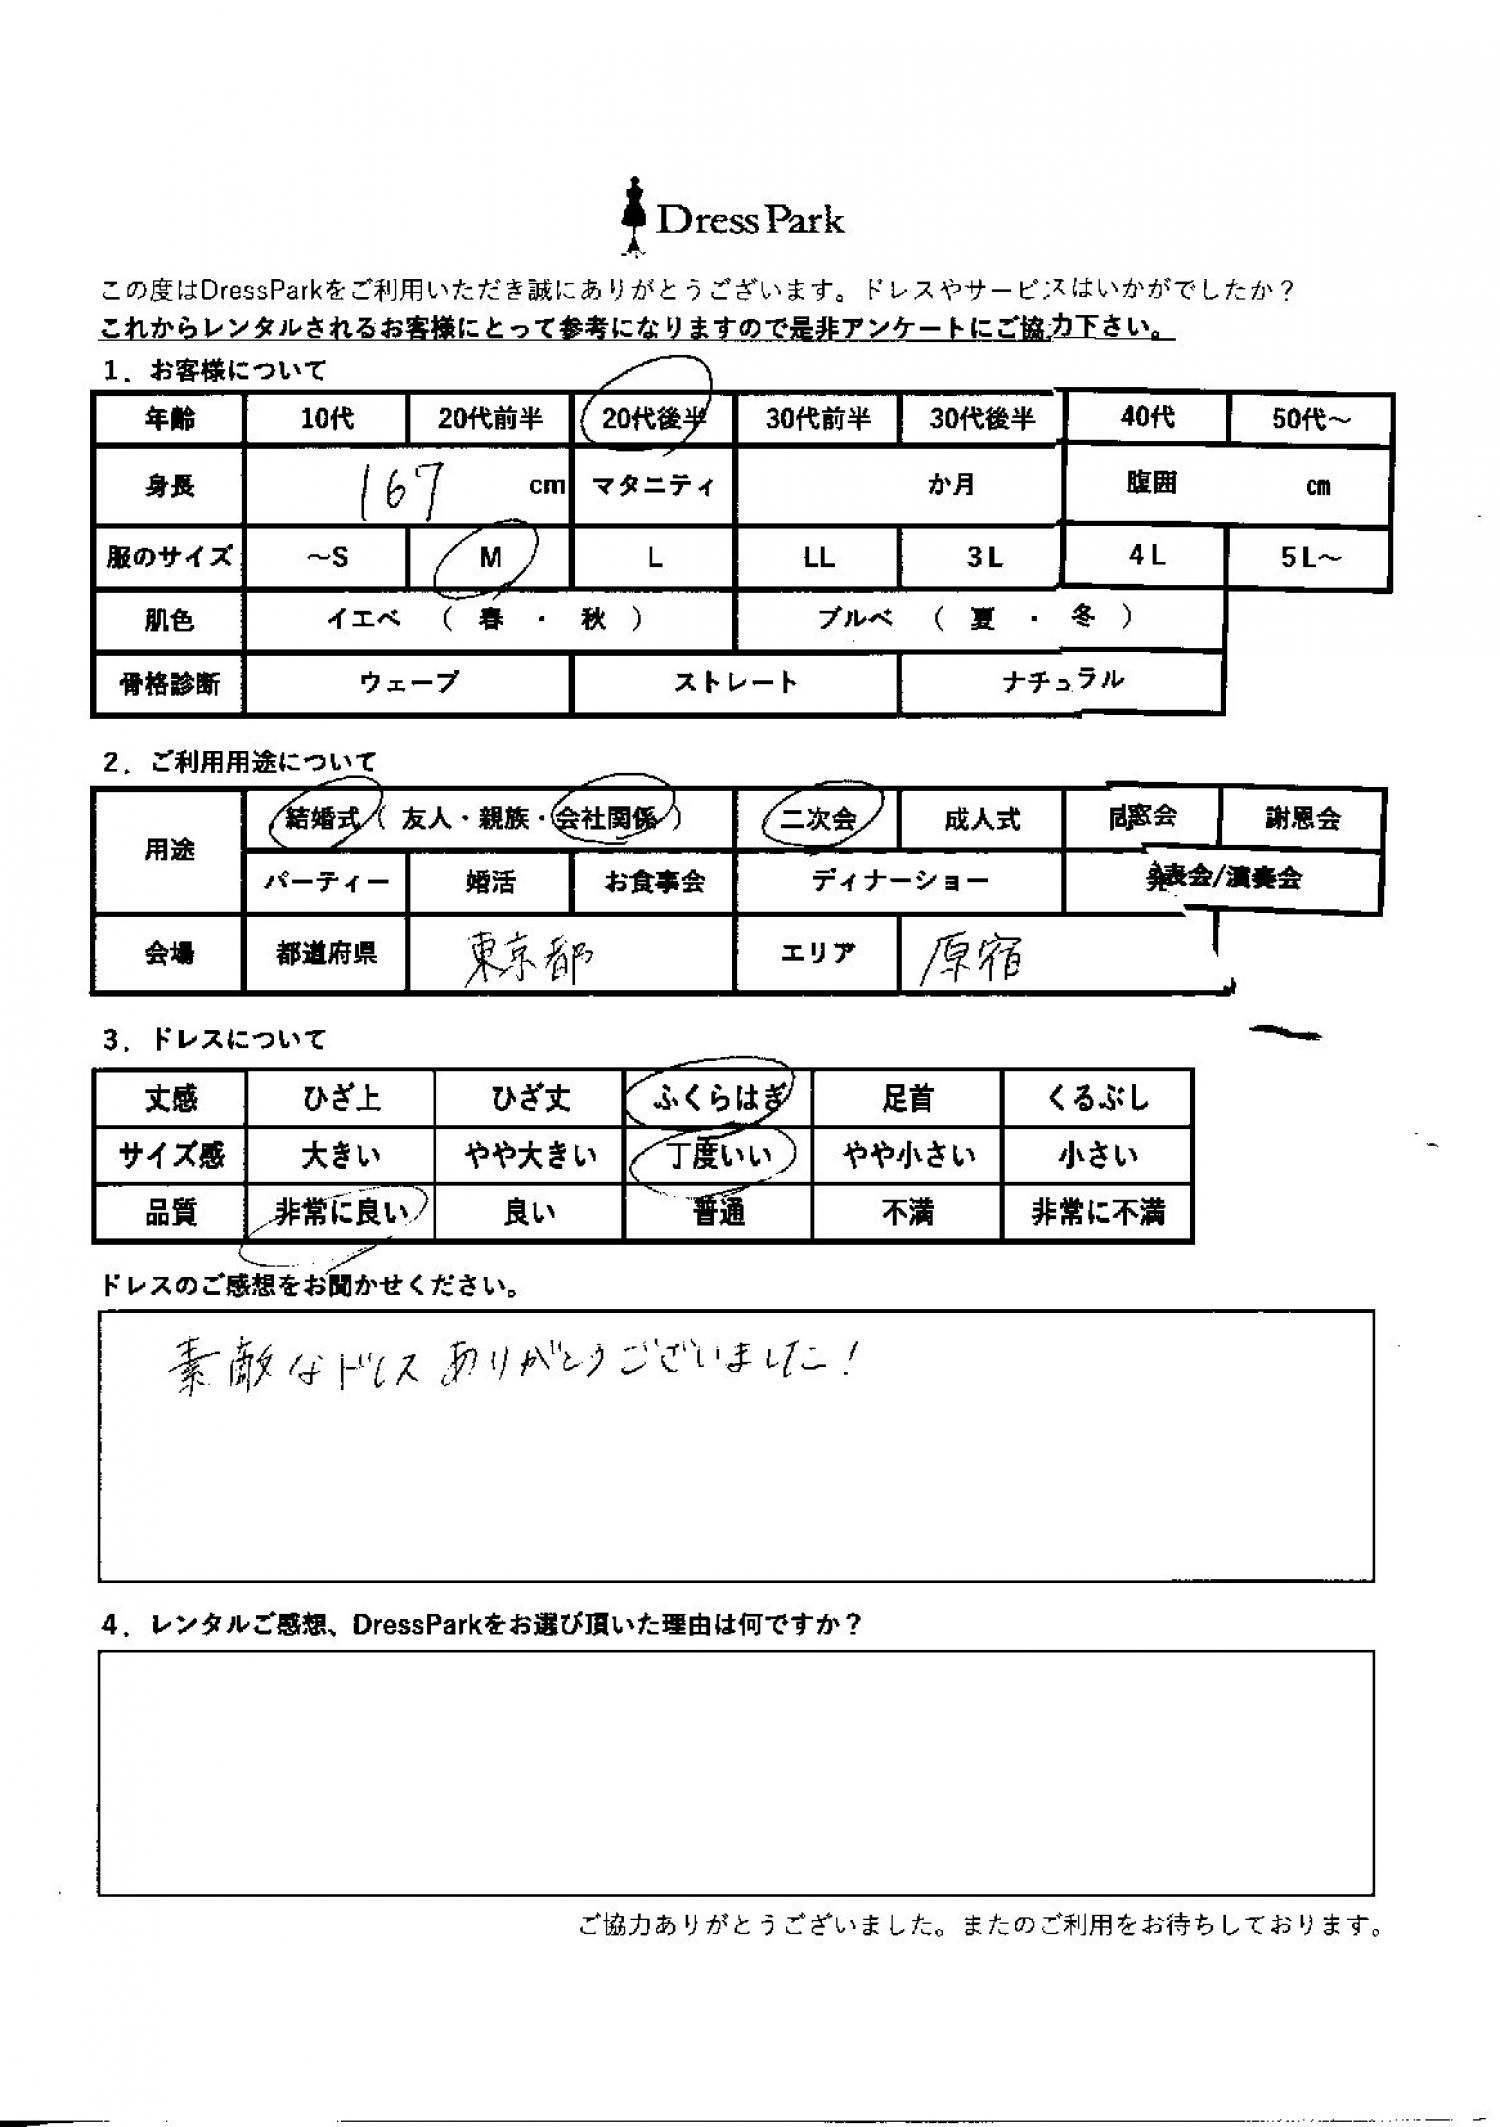 Dress Park
この度はDressParkをご利用いただき誠にありがとうございます。ドレスやサービスはいかがでしたか？
これからレンタルされるお客様にとって参考になりますので是非アンケートにご協力下さい。
1．お客様について
年齢 10代 20代前半 20代後半 30代前半 30代後半 40代 50代～
身長 167 cm マタニティ か月 腹囲 cm
服のサイズ ～S M L LL 3L 4L 5L～
肌色 イエベ （ 春 ・ 秋 ） ブルベ （ 夏 ・ 冬 ）
骨格診断 ウェーブ ストレート ナチュラル
2．ご利用用途について
用途 結婚式（ 友人・親族・会社関係 ） 二次会 成人式 同窓会 謝恩会
パーティー 婚活 お食事会 ディナーショー 発表会/演奏会
会場 都道府県 東京都 エリア 原宿
3．ドレスについて
丈感 ひざ上 ひざ丈 ふくらはぎ 足首 くるぶし
サイズ感 大きい やや大きい 丁度いい やや小さい 小さい
品質 非常に良い 良い 普通 不満 非常に不満
ドレスのご感想をお聞かせください。
素敵なドレスありがとうございました！
4．レンタルご感想、DressParkをお選び頂いた理由は何ですか？
ご協力ありがとうございました。またのご利用をお待ちしております。